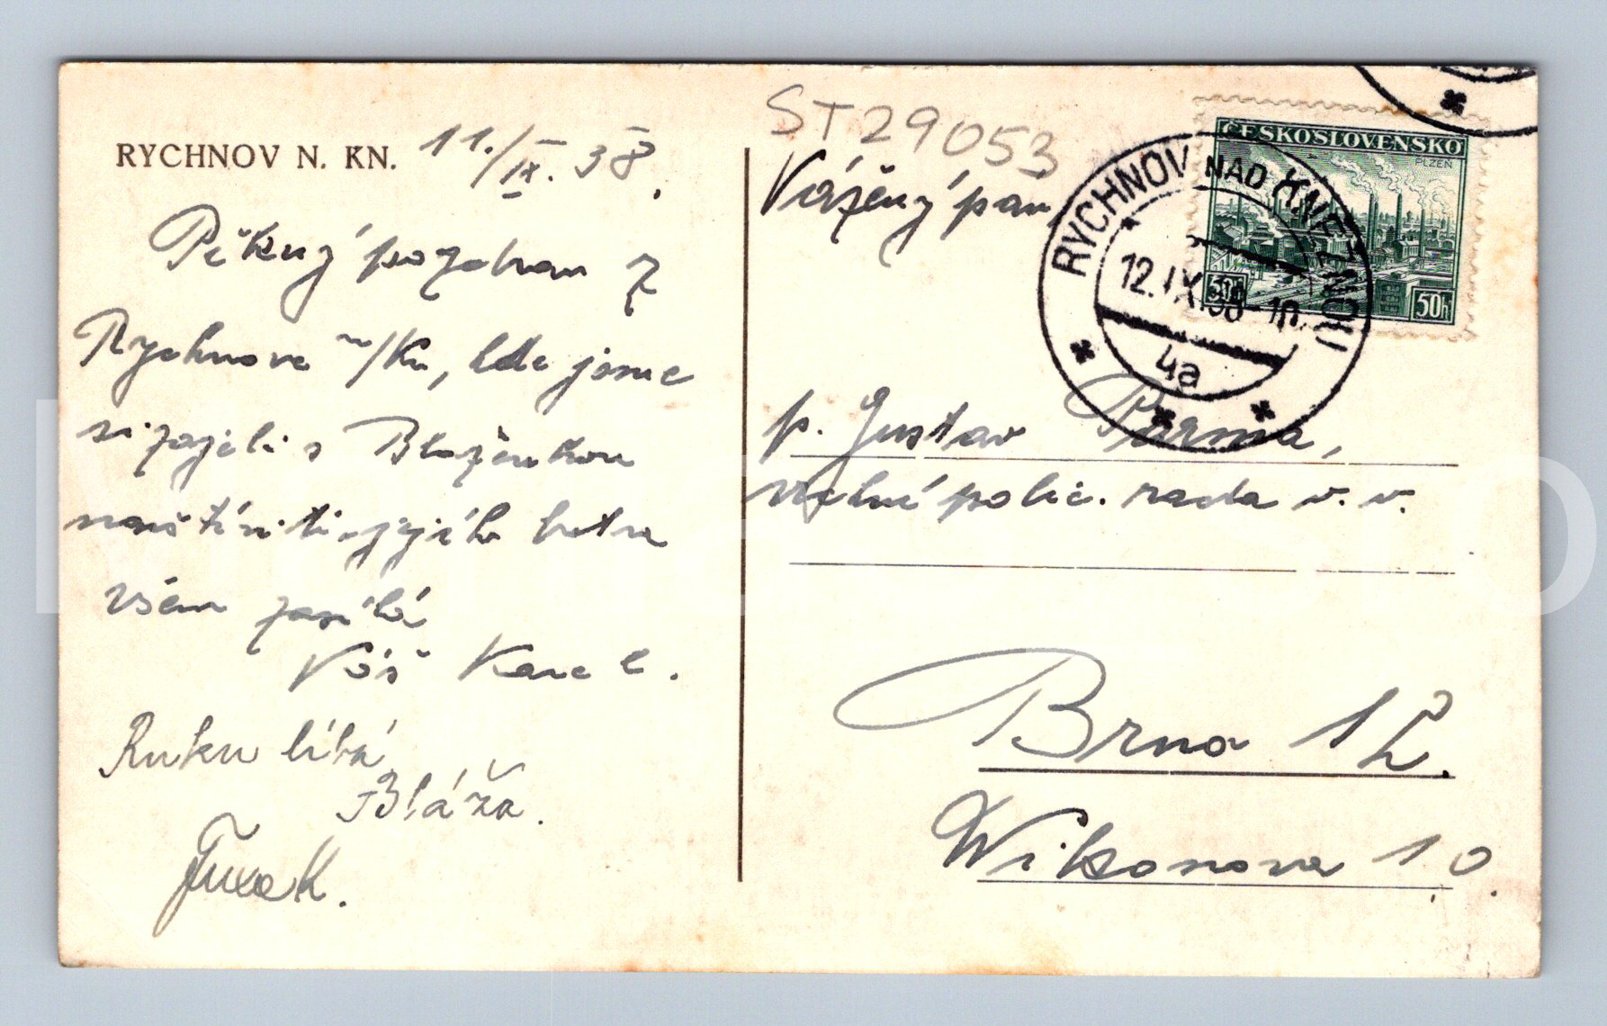 RYCHNOV N. KN. 11./IX. 38.
Pěkný pozdrav z
Rychnova n/Kn, kde jsme
si zajeli s Blaženkou
navštíviti jejího bratra
všem zasílá
Váš Karel.
Ruku líbá
Bláža.
ST29053
Vážený pán
ČESKOSLOVENSKO
PLZEŇ
50h
50h
RYCHNOV NAD KNĚŽNOU
12.IX.38-10
4a
p. Gustav Parma,
vrchní polic. rada v. v.
Brno 1Č.
Wilsonova 10.